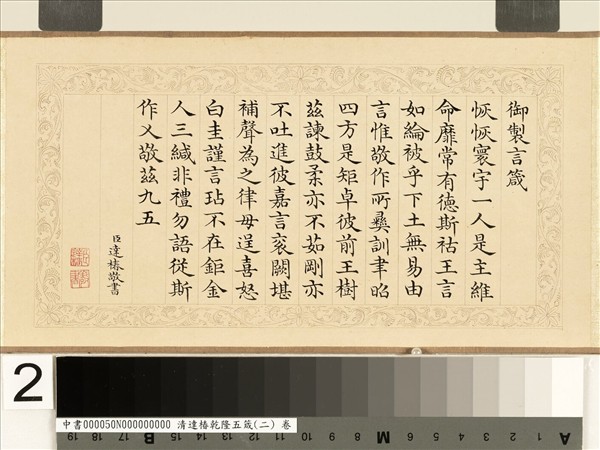 御製言箴
恢恢寰宇一人是主維
命靡常有德斯祜王言
如綸被乎下土無易由
言惟敬作所彝訓聿昭
四方是矩卓彼前王樹
茲諫鼓柔亦不茹剛亦
不吐進彼嘉言袞闕堪
補聲為之律毋逞喜怒
白圭謹言玷不在鉅金
人三緘非禮勿語從斯
作乂敬茲九五
臣達椿敬書
2
中書000050N000000000 清達椿乾隆五箴(二) 卷